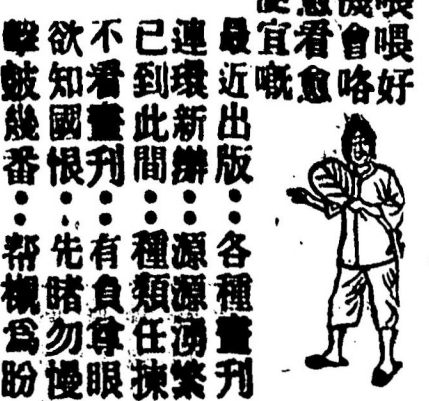 喂喂好
機會咯
愈看愈
便宜嘅
最近出版：各種畫刊
連環新辦：源源湧繁
已到此間：種類任揀
不看畫刊：有負尊眼
欲知國恨：先睹勿慢
擊皷幾番：帮襯爲盼